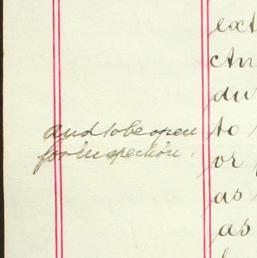 ext
du
and to be open to
for inspection. or
as
as